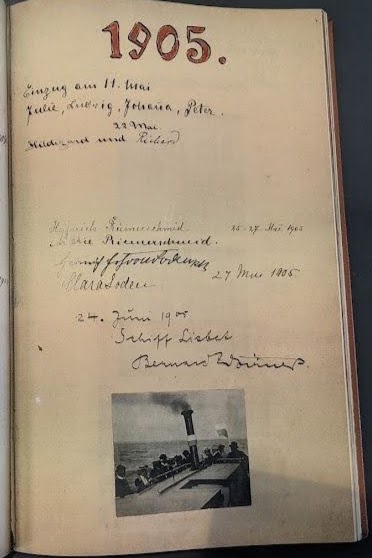 1905.
Einzug am 11. Mai
Julie, Ludwig, Johaña, Peter.
22 Mai.
Hildegard und Richard
Riemerschmid 25-27 Mai 1905
Riemerschmid.
Heinrich
Clara Loden 27 Mai 1905
24. Juni 1905
Schiff Lisbet
Bernard